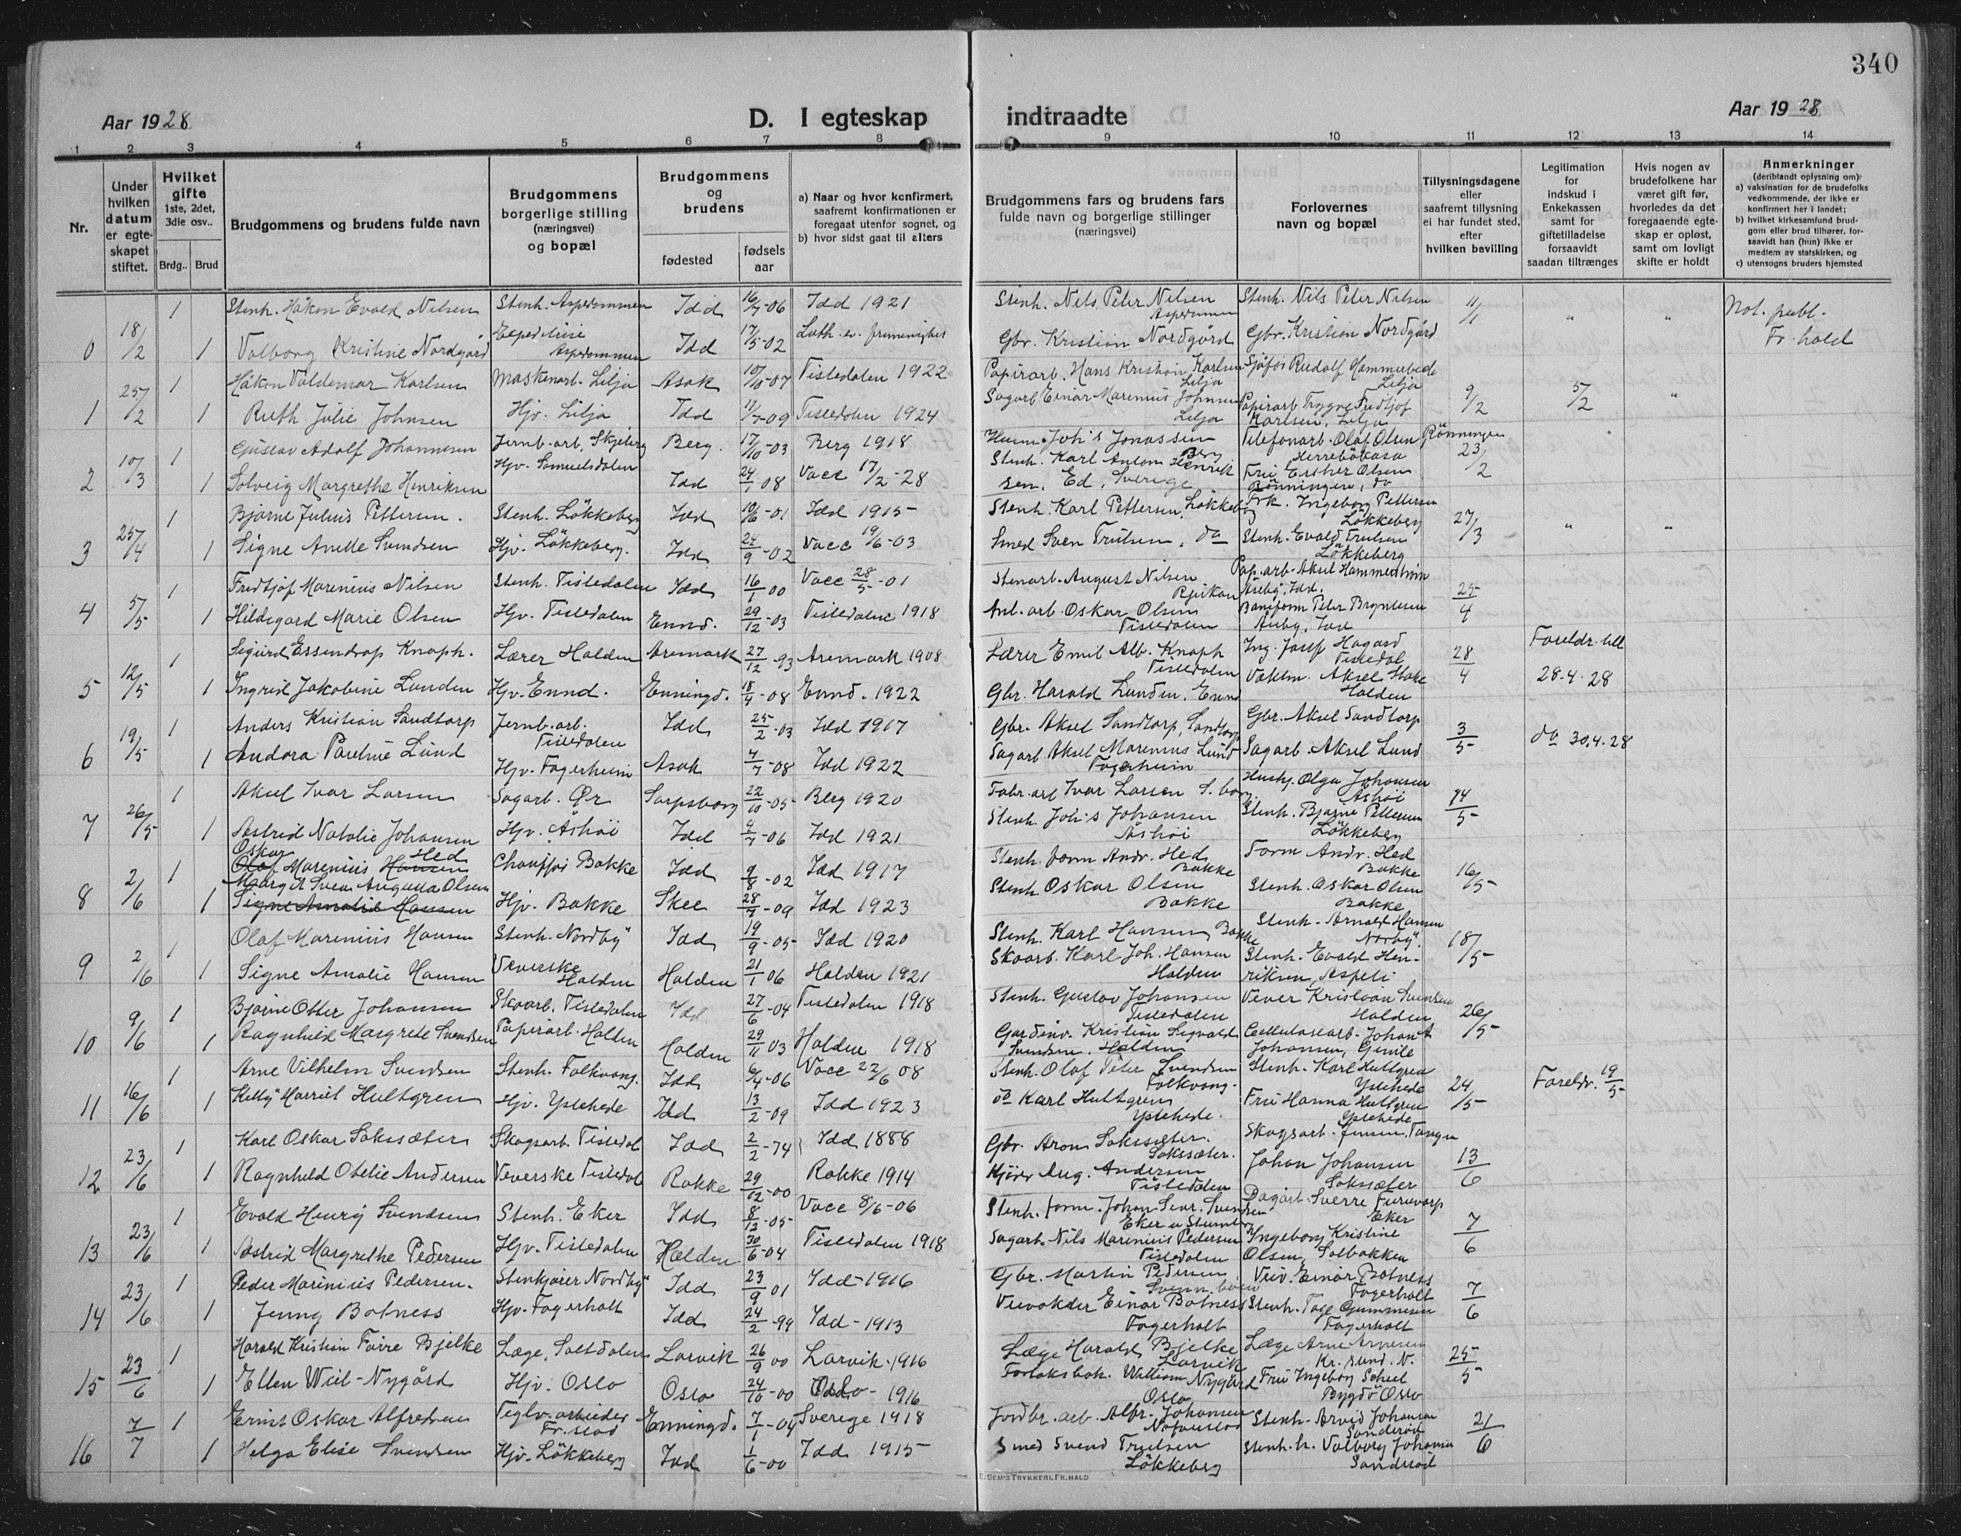 340
Aar 1928
D. I egteskap indtraadte
Aar 1928
1 2 3 4 5 6 7 8 9 10 11 12 13 14
Nr.
Under hvilken datum er egte-skapet stiftet.
Hvilket gifte 1ste, 2det, 3dle osv..
Brdg.. Brud
Brudgommens og brudens fulde navn
Brudgommens borgerlige stilling (næringsvei) og bopæl
Brudgommens og brudens
fødested
fødsels aar
a) Naar og hvor konfirmert, saafremt konfirmationen er foregaat utenfor sognet, og
b) hvor sidst gaat til alters
Brudgommens fars og brudens fars fulde navn og borgerlige stillinger (næringsvei)
Forlovernes navn og bopæl
Tillysningsdagene eller saafremt tillysning ei har fundet sted, efter hvilken bevilling
Legitimation for indskud i Enkekassen samt for giftetilladelse forsaavidt saadan tiltrænges
Hvis nogen av brudefolkene har været gift før, hvorledes da det foregaaende egte-skap er opløst, samt om lovligt skifte er holdt
Anmerkninger
(deriblandt oplysning om):
a) vaksination for de brudefolks vedkommende, der ikke er konfirmert her i landet;
b) hvilket kirkesamfund brud-gom eller brud tilhører, for-saavidt han (hun) ikke er medlem av statskirken, og
c) utensogns bruders hjemsted
0 18/2 1 Stenh. Håkon Evald Nilsen Stenh. Aspedammen Idd 16/7-06 Idd 1921 Stenh. Nils Peter Nilsen Aspedammen Stenh. Nils Peter Nilsen 11/1 " " Not. publ.
1 Valborg Kristine Nordgård Aspedammen Idd 17/5-02 Luth. ev. frimenighet Gbr. Kristian Nordgård Gbr. Kristian Nordgård Fr. hald
1 25/2 1 Håkon Valdemar Karlsen Maskinarb. Lilja Asak 10/10-07 Tistedalen 1922 Papirarb. Hans Kristian Karlsen Lilja Sjåfør Rudolf Hammerbede Lilja 9/2 5/2 "
1 Ruth Julie Johnsen Hjv. Lilja Idd 11/7-09 Tistedalen 1924 Sagarb Einar Marenius Johnsen Lilja Papirarb Trygve Fridtjof Karlsen, Lilja
2 10/3 1 Gustav Adolf Johannesen Jernb. arb. Skjeberg Berg. 17/10-03 Berg 1918 Joh's Jonassen Berg Telefonarb. Olaf Olsen Rönningen 23/2
1 Solveig Margrethe Hinriksen Hjv. Samuelsdalen Idd 24/1-08 Vacc 17/2-28 Stenh. Karl Anton Henriksen, Ed, Sverige Fru Esther Olsen Rönningen, do
3 25/4 1 Bjarne Julius Pettersen. Stenh. Lökkeberg Idd 10/6-01 Idd 1915 Stenh. Karl Pettersen, Lökkeberg Frk. Ingeborg Pettersen Lökkeberg 27/3 " "
1 Signe Anette Svendsen Hjv. Lökkeberg. Idd 24/9-02 Vacc 19/6-03 Smed Sven Trulsen, do Stenh. Evald Trulsen Lökkeberg
4 5/5 1 Fridtjof Marenius Nilsen Stenh. Tistedalen Idd 16/1 00 Vacc 28/5-01 Stenarb. August Nilsen Rjukan Pap. arb. Aksel Hammerstrøm Åseby, Idd. 25/4
1 Hildegard Marie Olsen Hjv. Tistedalen Ennd. 29/12-03 Tistedalen 1918 Anl. arb. Oskar Olsen Tistedalen Peter Bryntesen
5 12/5 1 Sigurd Essendrop Knoph. Lærer Halden Aremark 27/12-93 Aremark 1908 Lærer Emil Alb. Knoph Tistedalen Ing. Josef Hagard Tistedal 28/4 Foreldr. till 28.4.28
1 Ingrid Jakobine Lunden Hjv. Ennd. Enningd. 18/4-08 Ennd. 1922 Gbr. Harald Lunden, Ennd Vaktm. Aksel Halden
6 19/5 1 Anders Kristian Sandtorp Jernb. arb. Tistedalen Idd 25/2-03 Idd 1917 Gbr. Aksel Sandtorp, Sandtorp Gbr. Aksel Sandtorp 3/5 do 30.4.28
1 Andora Pauline Lund Hjv. Fagerheim Asak 7/7-08 Idd 1922 Sagarb Aksel Marenius Lund Fagerheim Sagarb. Aksel Lund
7 26/5 1 Aksel Ivar Larsen Sagarb. Ør Sarpsborg 22/10-05 Berg 1920 Fabr. arb Ivar Larsen S. borg. Hush. Olga Johansen Åshöi 14/5
1 Astrid Natalie Johansen Hjv. Åshöi Idd 4/7-06 Idd 1921 Stenh. Joh's Johansen Åshöi Stenh. Bjarne Pettersen Lökkeberg
8 2/6 1 Oskar Olaf Marenius Hansen Hed Chauffør Bakke Idd 9/8-02 Idd 1917 Stenh. form Andr. Hed Bakke Form Andr. Hed Bakke 16/5
1 Margit Svea Augusta Olsen Signe Amalie Hansen Hjv. Bakke Skee 28/7-09 Idd 1923 Stenh. Oskar Olsen Bakke Stenh. Oskar Olsen Bakke
9 2/6 1 Olaf Marenius Hansen Stenh. Nordby Idd 19/9-05 Idd 1920 Stenh. Karl Hansen, Bakke Stenh. Arnold Hansen Norby. 18/5
1 Signe Amalie Hansen Veverske Halden Halden 21/1 06 Halden 1921 Skoarb. Karl Joh. Hansen Halden Stenh. Evald Hen-riksen, Aspeli
10 9/6 1 Bjarne Otter Johansen Skoarb. Tistedalen Idd 27/6-04 Tistedalen 1918 Stenh. Gustav Johansen Tistedalen Vever Kristian Svensen Halden 26/5
1 Ragnhild Margrete Svendsen Papirarb. Halden Halden 29/11 03 Halden 1918 Kristian Sigvald Svendsen, Halden Cellulosearb. Johan A Johansen,
11 16/6 1 Arne Vilhelm Svendsen Stenh. Folkvang. Idd 6/4-06 Vacc 22/6 08 Stenh. Olaf Peter Svendsen Folkvang. Stenh. Karl Hultgren Ystehede 24/5 Foreldr. 19/5
1 Ketty Harriet Hultgren Hjv. Ystehede Idd 13/2-09 Idd 1923 do Karl Hultgren Ystehede. Fru Hanna Hultgren Ystehede
12 23/6 1 Karl Oskar Sakssæter Skogsarb. Tistedal Idd 2/2-74 Idd 1888 Gbr. Aron Sakssæter. Sakssæter. Skogsarb. Jensen, Tangen 13/6
1 Ragnhild Otelie Andersen Veverske Tistedal Rakke 29/12-00 Rakke 1914 Kjører Aug. Andersen Tistedalen Johan Johansen Sakssæter
13 23/6 1 Evald Henry Svendsen Stenh. Eker Idd 8/12-05 Vacc 8/6-06 Stenh. form. Johan Svendsen Eker Sverre Furuvarp Eker 7/6
1 Astrid Margrethe Pedersen Hjv. Tistedalen Halden 30/6-04 Tistedalen 1918 Sagarb. Nils Marenius Pedersen Tistedalen Ingeborg Kristine Olsen, Solbakken
14 23/6 1 Peder Marinius Pedersen. Stenkjører Nordby Idd 23/9 01 Idd-1916 Gbr. Martin Pedersen, Veiv. Einar Botness Fagerholt 7/6
1 Jenny Botness Hjv. Fagerholt Idd 24/2-99 Idd-1913 Veivokder Einar Botness Fagerholt Stenh. Tage Gummesen Fagerholt
15 23/6 1 Harald Kristian Færre Bjelke Læge, Saltdalen Larvik 26/9 00 Larvik-1916 Læge Harald Bjelke Larvik Læge Arne Arnesen Kr. sund. N. 25/5
1 Ellen Wiel-Nygård Hjv. Oslo Oslo 24/10-00 Oslo-1916 Forlagsbok. William Nygård Oslo Fru Ingeborg Scheel Bygdö Oslo
16 7/7 1 Ernst Oskar Alfredsen Teglv. arbeider Fr. stad Enningd. 7/1-04 Sverige 1918 Jordbr. arb. Alfr. Johansen Stenh. Arvid Johansen Sanderöd 21/6
1 Helga Elise Svendsen Hjv. Lökkeberg Idd 1/6-00 Idd 1915 Smed Svend Trulsen Lökkeberg Stenh. h. Valborg Johansen Sanderöd
E. SEMS TRYKKERI, FR. HALD